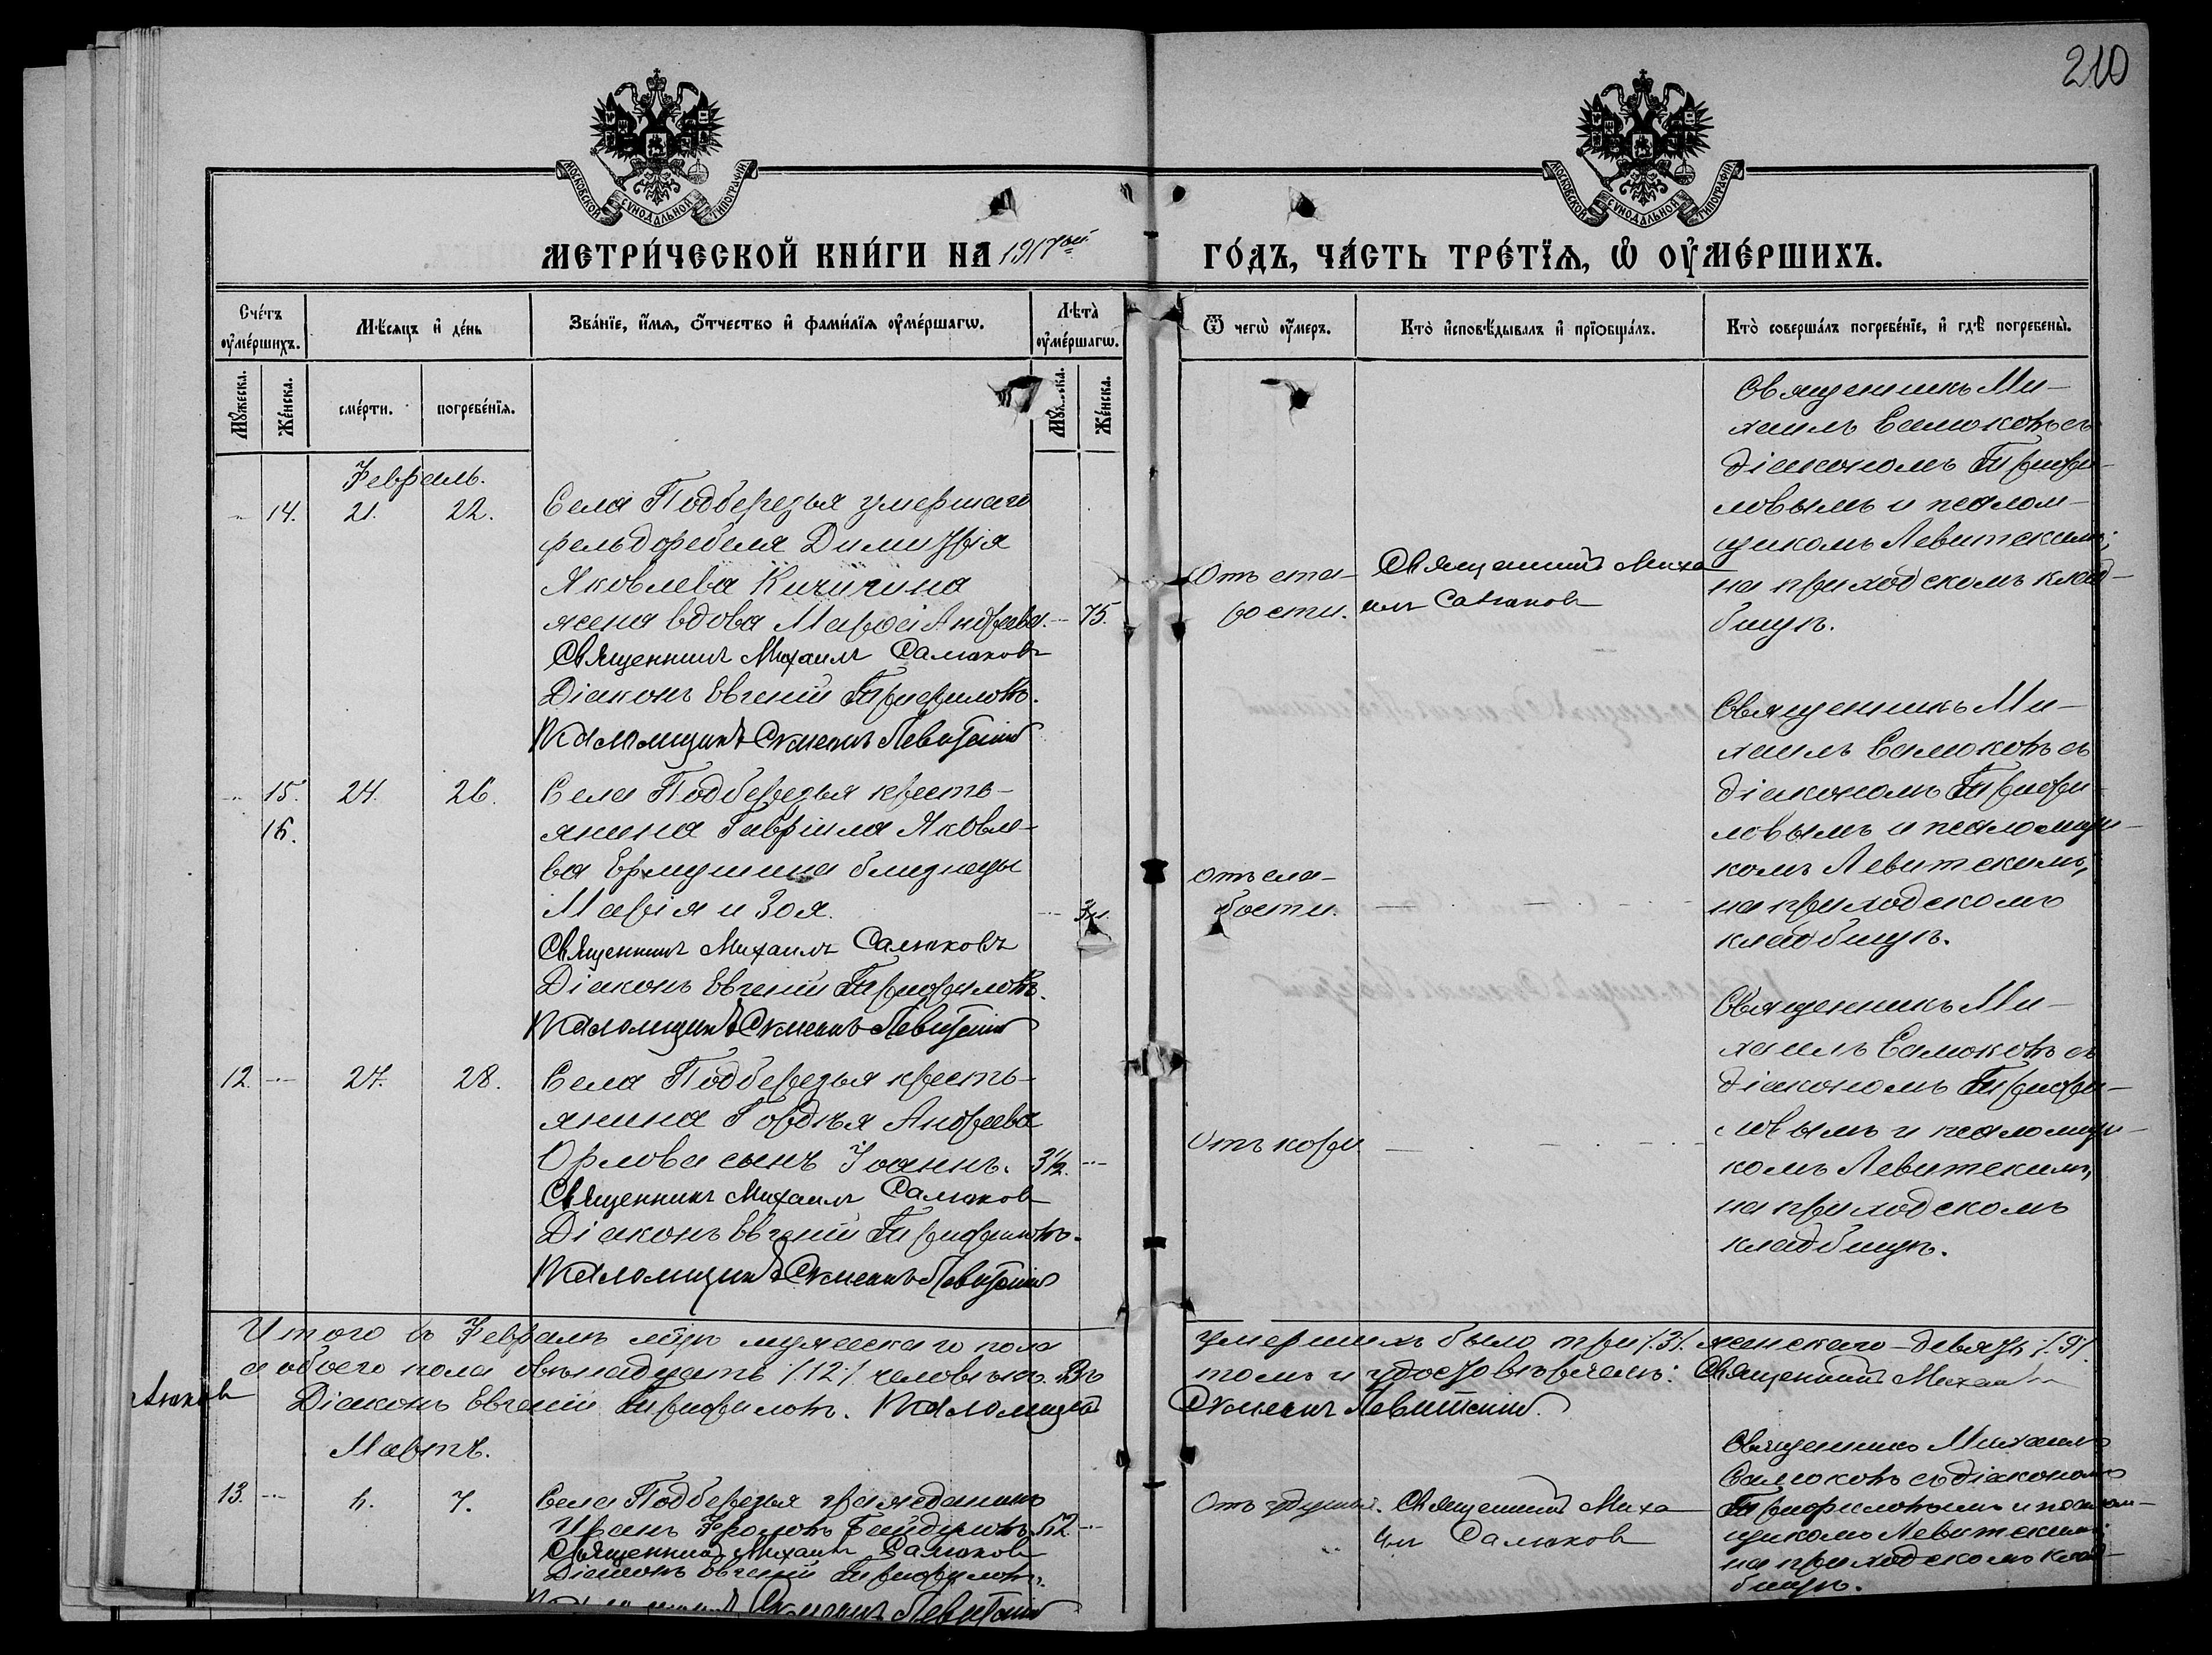 210
МОСКОВСКОЙ СѴНОДАЛЬНОЙ ТИПОГРАФІИ
МОСКОВСКОЙ СѴНОДАЛЬНОЙ ТИПОГРАФІИ
МЕТРИ́ЧЕСКОЙ КНИ́ГИ НА 1917ый
ГО́ДЪ, ЧА́СТЬ ТРЕ́ТЇѦ, Ѡ҆ ОУ҆МЕ́РШИХЪ.
Сче́тъ оу҆ме́ршихъ.
Мѣ́сяцъ и҆ де́нь
Зва́нїе, и҆́мѧ, ѻ҆́тчество и҆ фами́лїѧ оу҆ме́ршагѡ.
Лѣта̀ оу҆ме́ршагѡ.
Мꙋ́жеска.
Же́нска.
сме́рти.
погребе́нїѧ.
Же́нска.
Ѿ чегѡ̀ оу҆́меръ.
Кто̀ и҆сповѣ́дывалъ и҆ прїѡбща́лъ.
Кто̀ соверша́лъ погребе́нїе, и҆ гдѣ̀ погребены̀.
Февраль.
14. 21. 22. Села Подберезья умершаго
фельдфебеля Димитрія
Яковлева Кичигина
жена вдова Марѳа Андреева. 75.
Священникъ Михаилъ Салюковъ
Діаконъ Евгеній Трифиловъ.
Псаломщикъ Симеонъ Левитскій
Отъ ста-
рости.
Священникъ Миха
илъ Салюковъ
Священникъ Ми-
хаилъ Салюковъ съ
діакономъ Трифи-
ловымъ и псалом-
щикомъ Левитскимъ;
на приходскомъ клад-
бищѣ.
15. 24. 26. Села Подберезья кресть-
16. янина Гавріила Яковле-
ва Ермушина близнецы
Марія и Зоя.
Священникъ Михаилъ Салюковъ
Діаконъ Евгеній Трифиловъ.
Псаломщикъ Симеонъ Левитскій
Отъ сла-
бости.
Священникъ Ми-
хаилъ Салюковъ съ
діакономъ Трифи-
ловымъ и псаломщи-
комъ Левитскимъ,
на приходскомъ
кладбищѣ.
12. 27. 28. Села Подберезья кресть-
янина Гордѣя Андреева
Орлова сынъ Іоаннъ. 3½.
Священникъ Михаилъ Салюковъ
Діаконъ Евгеній Трифиловъ.
Псаломщикъ Симеонъ Левитскій
Отъ кори
Священникъ Ми-
хаилъ Салюковъ съ
діакономъ Трифи-
ловымъ и псаломщи-
комъ Левитскимъ,
на приходскомъ
кладбищѣ.
Итого въ Февралѣ м̃цѣ мужескаго пола умершихъ было три /.3/. женскаго - девять /.9/.
а обоего пола двѣнадцать /.12./ человѣкъ. Въ томъ и удостовѣряемъ: Священникъ Михаилъ
Салюковъ Діаконъ Евгеній Трифиловъ. Псаломщикъ Симеонъ Левитскій.
Мартъ.
13. 6. 7. Села Подберезья гражданинъ
Иванъ Фроловъ 52
Священникъ Михаилъ Салюковъ
Діаконъ Евгеній Трифиловъ.
Псаломщикъ Симеонъ Левитскій
Отъ удушья.
Священникъ Миха
илъ Салюковъ
Священникъ Михаилъ
Салюковъ съ діакономъ
Трифиловымъ и псалом-
щикомъ Левитскимъ;
на приходскомъ клад-
бищѣ.